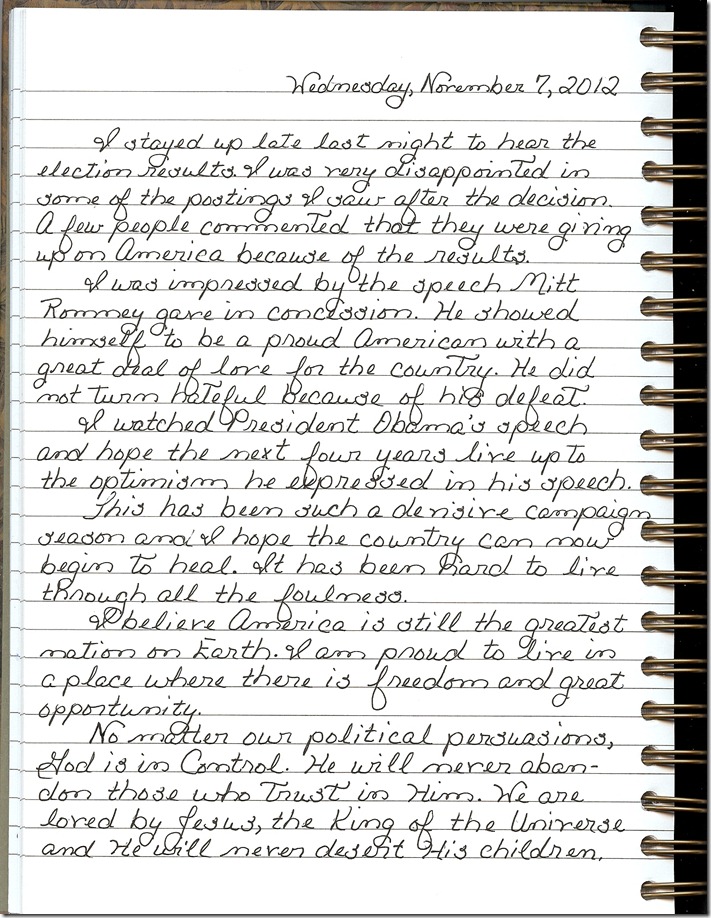 Wednesday, November 7, 2012
I stayed up late last night to hear the
election results. I was very disappointed in
some of the postings I saw after the decision.
A few people commented that they were giving
up on America because of the results.
I was impressed by the speech Mitt
Romney gave in concession. He showed
himself to be a proud American with a
great deal of love for the country. He did
not turn hateful because of his defeat.
I watched President Obama's speech
and hope the next four years live up to
the optimism he expressed in his speech.
This has been such a derisive campaign
season and I hope the country can now
begin to heal. It has been hard to live
through all the foulness.
I believe America is still the greatest
nation on Earth. I am proud to live in
a place where there is freedom and great
opportunity.
No matter our political persuasions,
God is in Control. He will never aban-
don those who Trust in Him. We are
loved by Jesus, the King of the Universe
and He will never desert His children.